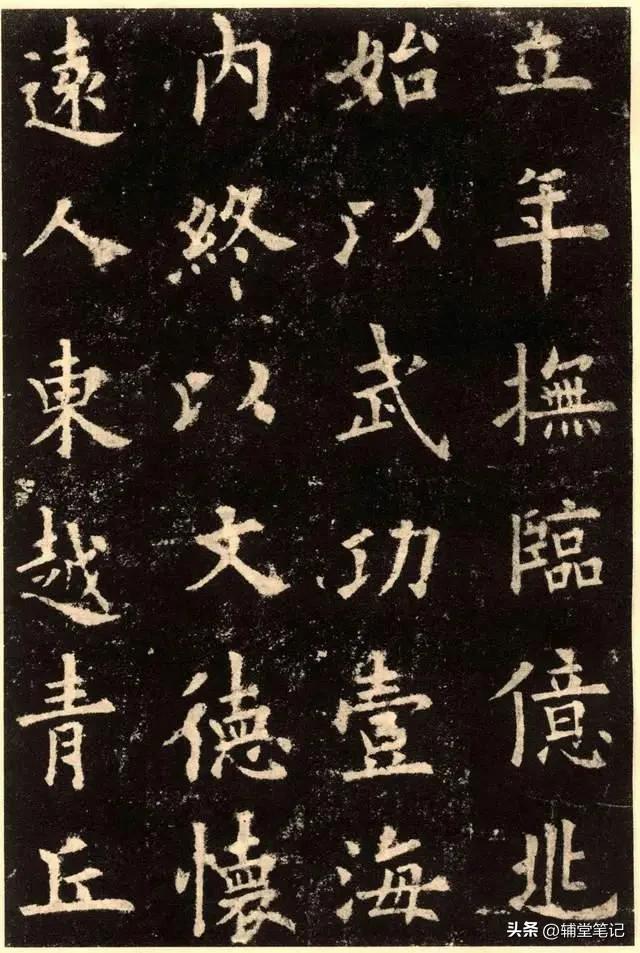 立年撫臨億兆
始以武功壹海
内終以文德懷
遠人東越青丘
头条 @辅堂笔记